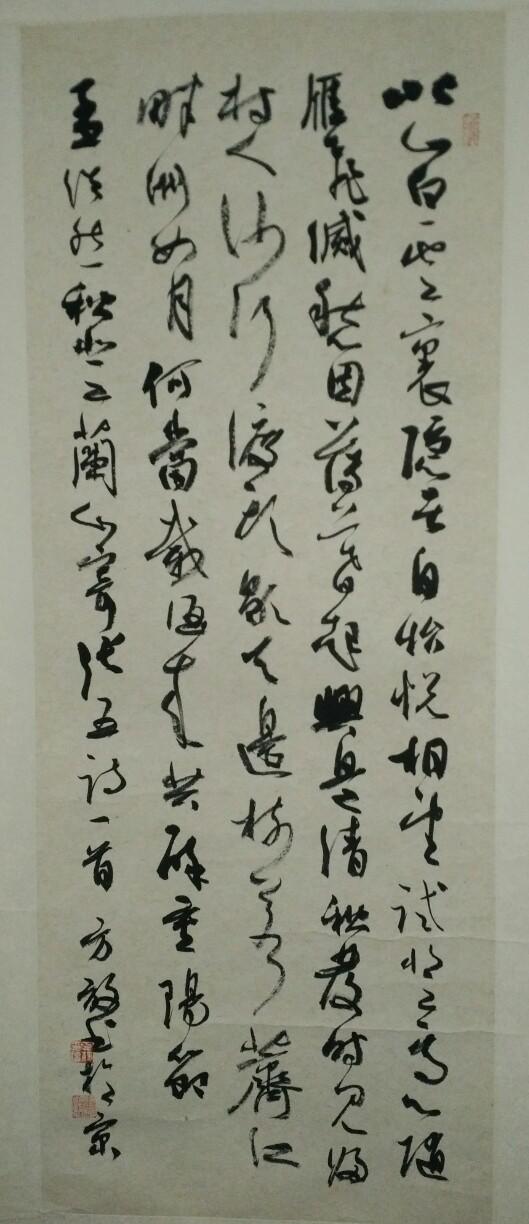 北山白雲裏隱者自怡悦相望試登高心隨
雁飛滅愁因薄暮起興是清秋發時見歸
村人沙行渡頭歇天邊樹若薺江
畔洲如月何當載酒來共醉重陽節
孟浩然秋登蘭山寄張五詩一首 方書於京